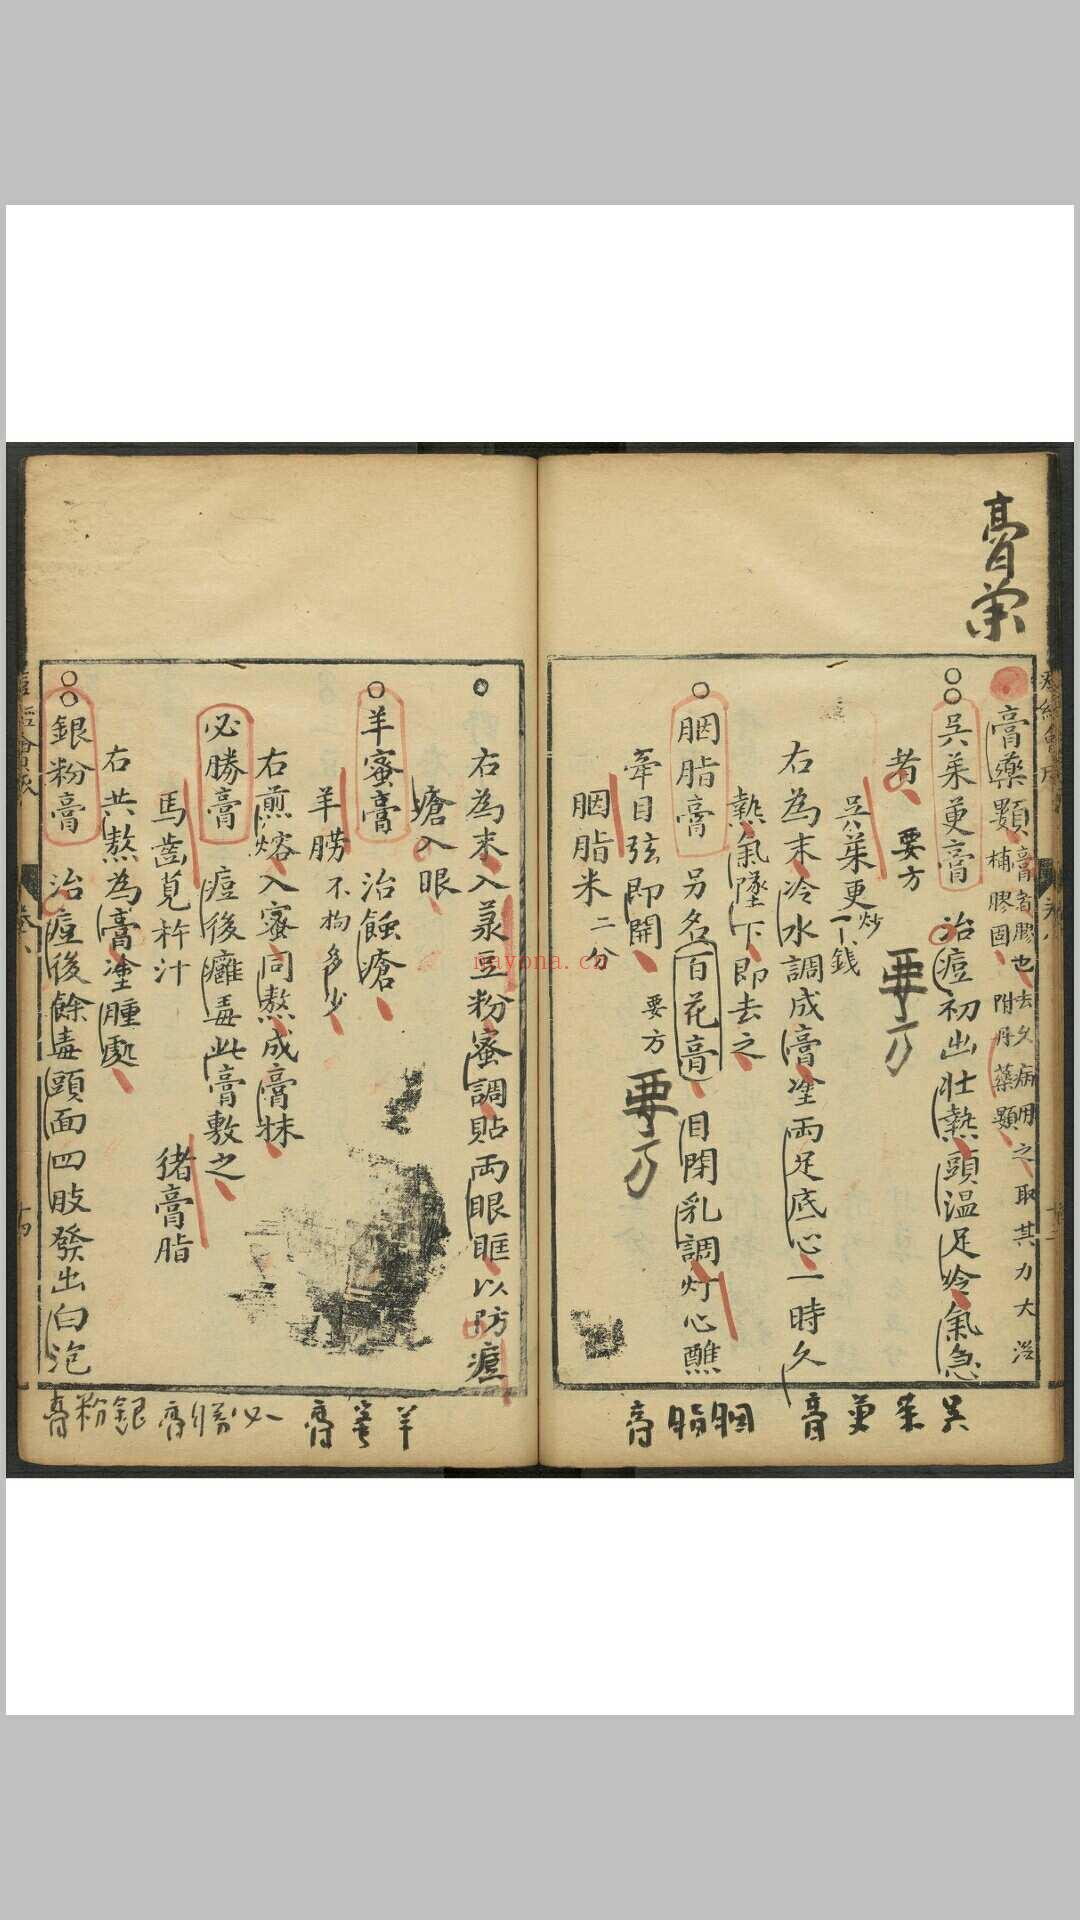 膏藥
膏藥類 膏者膠也去久病用之取其力大滋補膠固 附丹藥類
吳茱萸膏 治痘初出壯熱頭溫足冷氣急
者 要方 要方
吳茱萸 炒一錢
右為末冷水調成膏塗兩足底心一時久
熱氣墜下即去之
胭脂膏 另名百花膏 目閉乳調灯心蘸
牽目弦即開 要方 要方
胭脂米 二分
右為末入菉豆粉蜜調貼兩眼眶以防痘
瘡入眼
羊蜜膏 治蝕瘡
羊膀 不拘多少
右煎熔入蜜同熬成膏抹
必勝膏 痘後癰毒此膏敷之
馬齒莧杵汁 猪膏脂
右共熬為膏塗腫處
銀粉膏 治痘後餘毒頭面四肢發出白泡
吳茱萸膏
胭脂膏
羊蜜膏
必勝膏
銀粉膏
nayona.cn